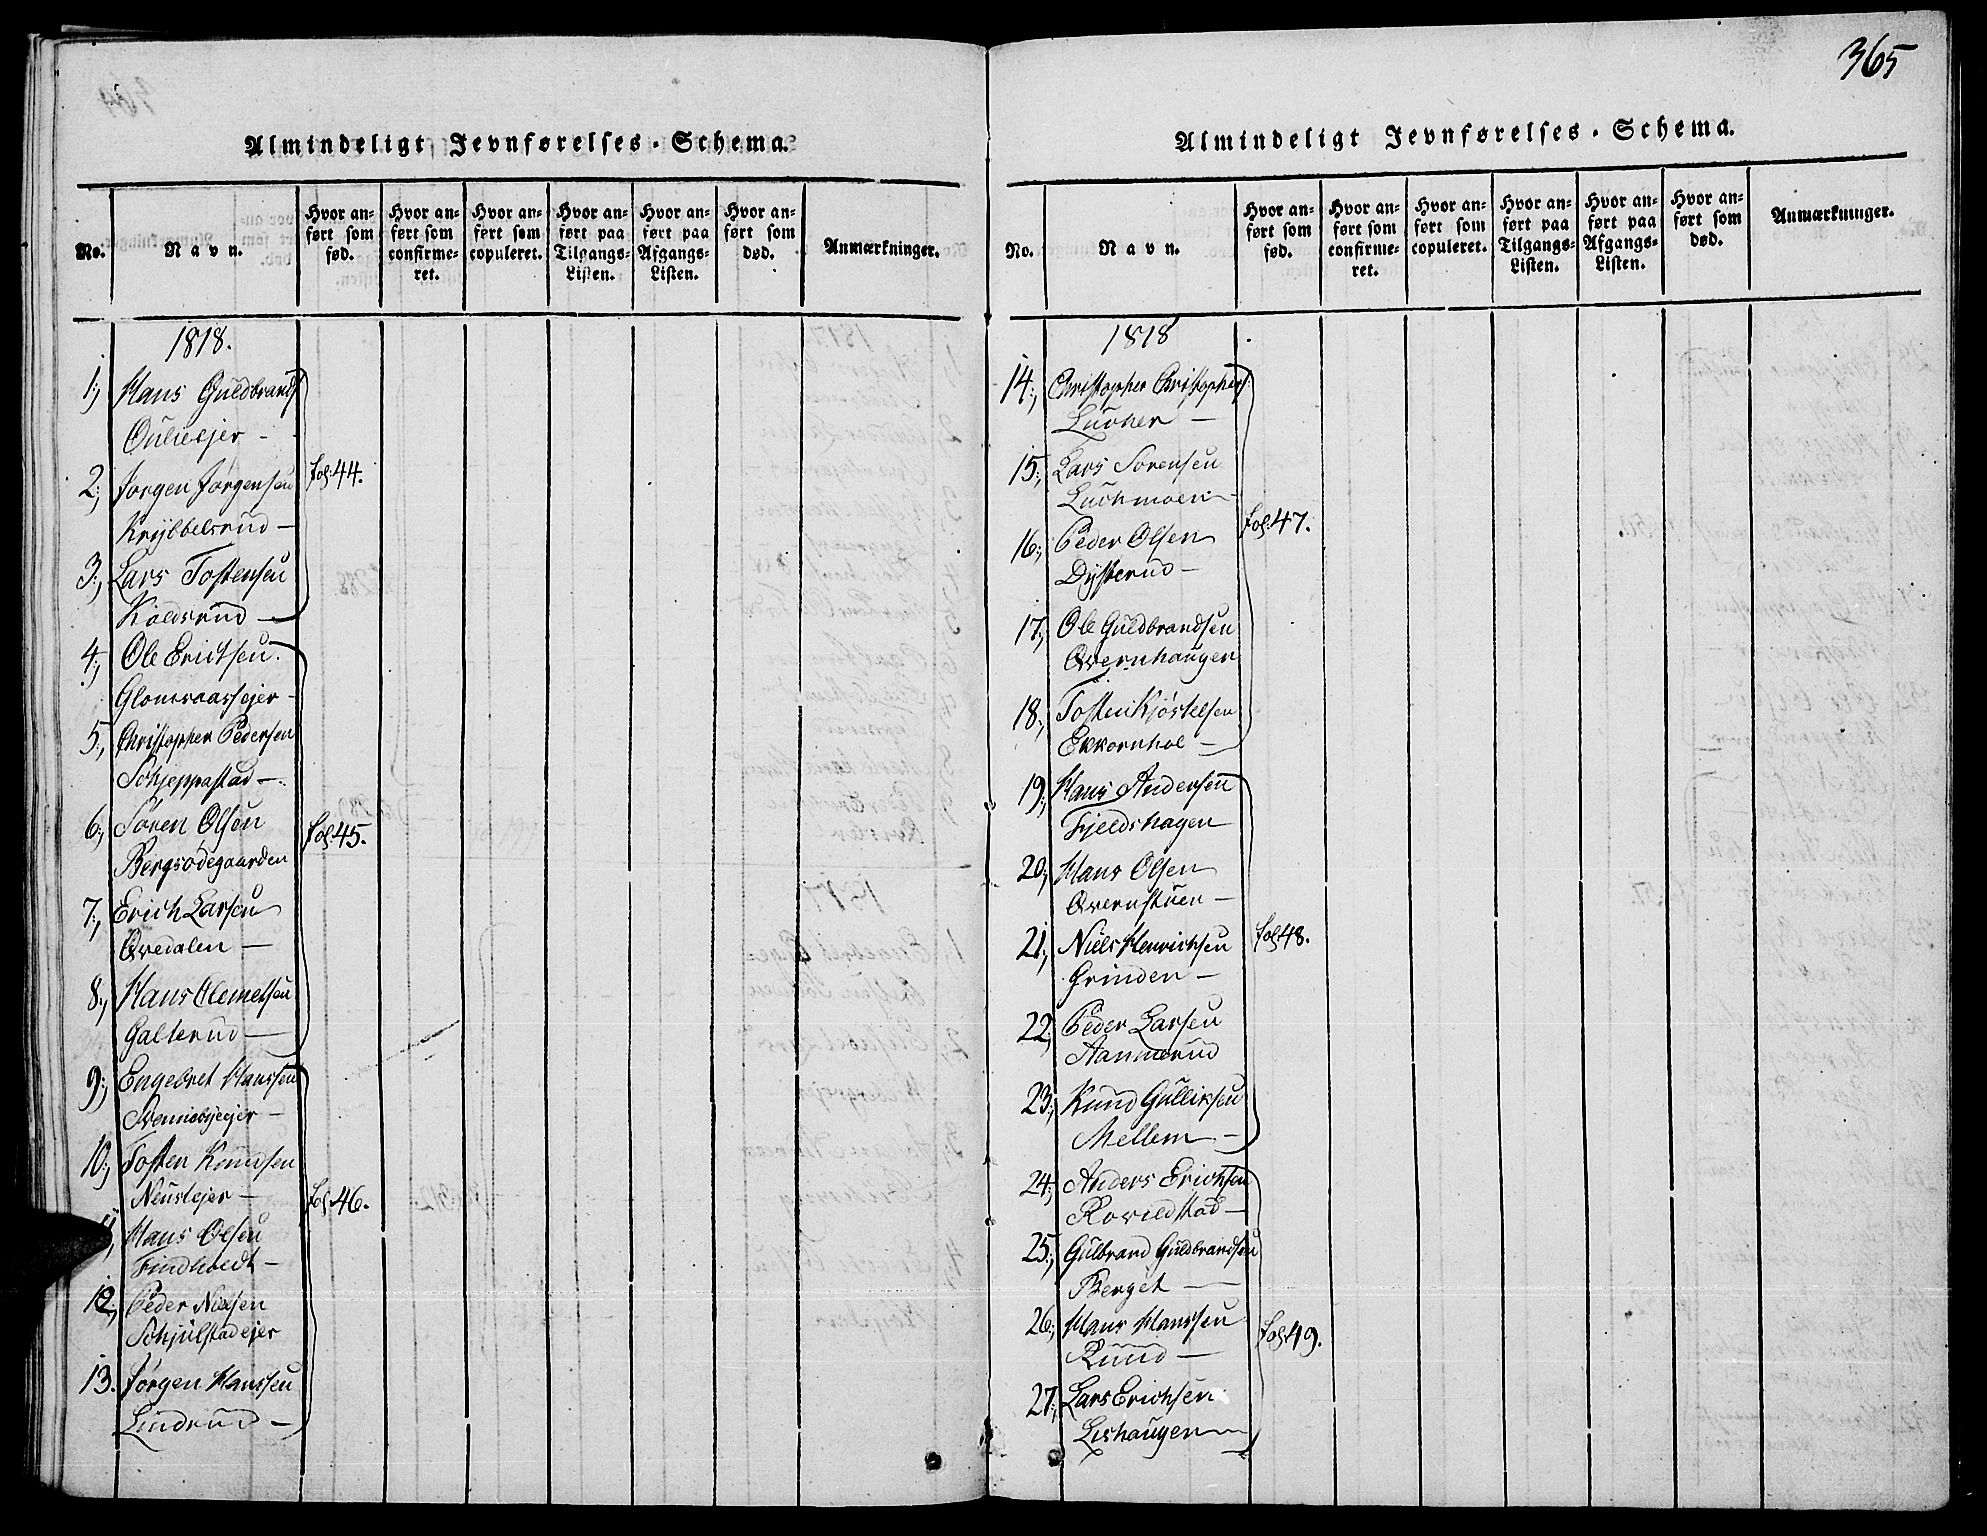 Almindeligt Jevnførelses-Schema.
No.
Navn.
Hvor anført som fød.
Hvor anført som confirmeret.
Hvor anført som copuleret.
Hvor anført paa Tilgangs-Listen.
Hvor anført paa Afgangs-Listen.
Hvor anført som død.
Anmærkninger.
1818.
1., Hans Guldbrands
Oulieejer -
2., Jörgen Jörgensen fol:44.
Krybbelsrud -
3., Lars Tostensen
Koldsrud -
4., Ole Erictsen
Glomsaassejer -
5., Christopher Pedersen
Schjeppastad -
6., Sören Olsen fol:45.
Bergsödegaarden
7., Erich Larsen
Qvedalen -
8., Hans Clemetsen
Galterud -
9., Engebret Hanssen
Svennebyejer -
10., Tosten Knudsen
Neuslejer - fol:46.
11, Hans Olsen
Findhoedt -
12., Peder Nielsen
Schjülstadejer
13. Jörgen Hanssen
Lindrud -
365
Almindeligt Jevnførelses-Schema.
No.
Navn.
Hvor anført som fød.
Hvor anført som confirmeret.
Hvor anført som copuleret.
Hvor anført paa Tilgangs-Listen.
Hvor anført paa Afgangs-Listen.
Hvor anført som død.
Anmærkninger.
1818
14., Christopher Christophers:
Lucher -
15., Lars Sörensen
Luchmoen -
16., Peder Olsen fol:47.
Dysterud -
17., Ole Guldbrandsen
Qvernhaugen
18., Tosten Kjöstelsen
Ekkornhol -
19., Hans Andersen
Fjeldshagen
20., Hans Olsen
Qvernstuen -
21., Niels Henrichsen fol:48.
Grinden -
22., Peder Larsen
Aannerud
23., Knud Gulliksen
Mellem -
24., Anders Erichsen
Rovildstad -
25., Gulbrand Guldbrandsen
Berget -
26., Hans Hanssen fol:49.
Ruud -
27., Lars Erichsen
Lishaugen -